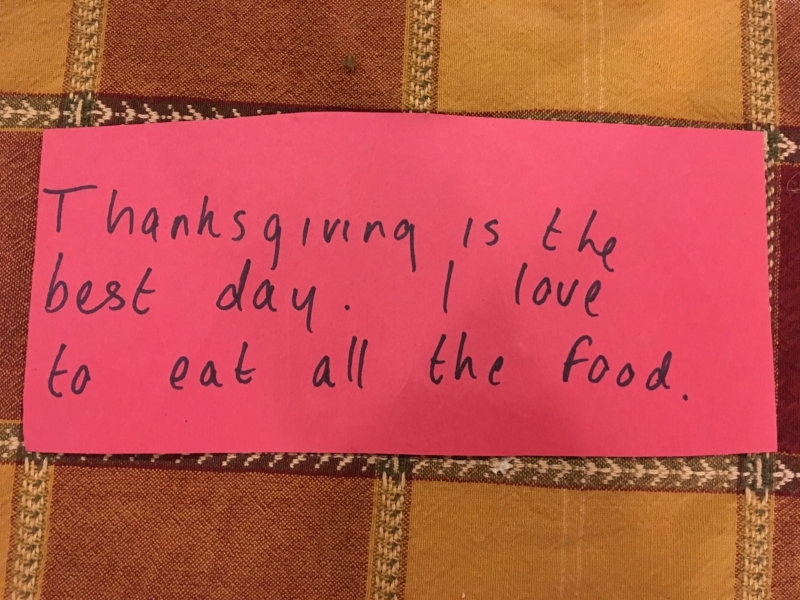 Thanksgiving is the
best day. I love
to eat all the food.